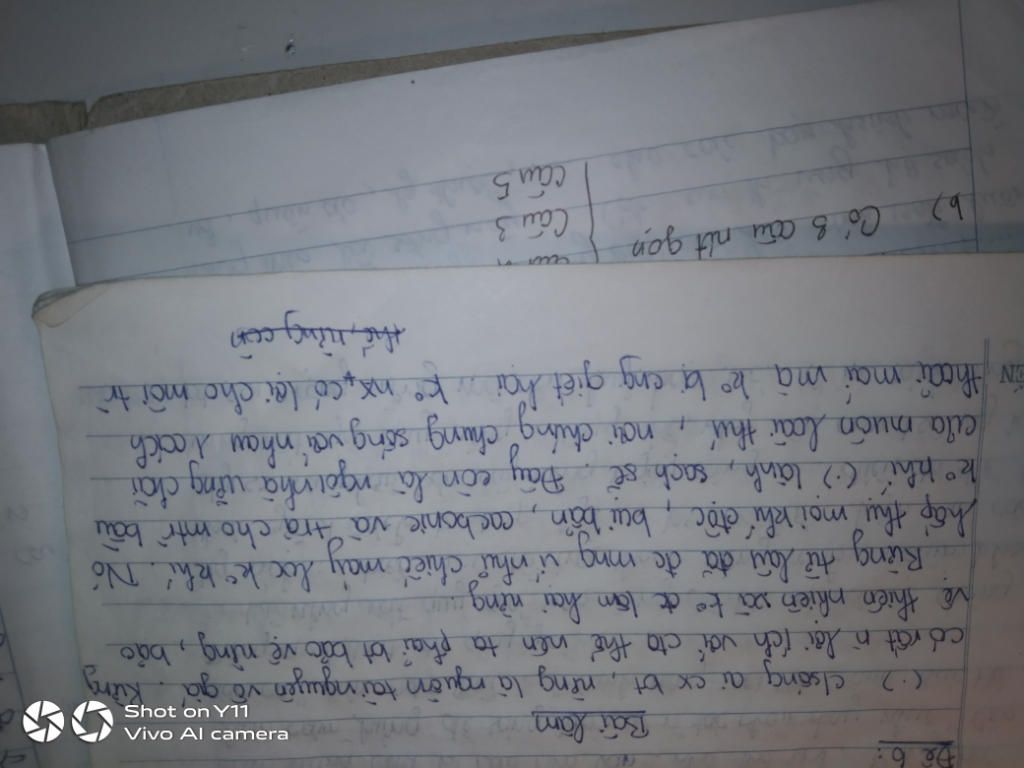 Đề 6:
Bài làm
(.) c/sống ai cx bt, rừng là nguồn tài nguyên vô giá. Rừng
có rất n lợi ích với cta thế nên ta phải bt bảo vệ rừng, bảo
vệ thiên nhiên và ko đc làm hại rừng.
Rừng từ lâu đã đc mng ví như chiếc máy lọc ko khí. Nó
hấp thụ mọi khí độc, bụi bẩn, cacbonic và trả cho mtr bầu
ko khí (.) lành, sạch sẽ. Đây còn là ngôi nhà
của muôn loài thú, nơi chúng chung sống với nhau 1 cách
thoải mái mà ko bị giết hại ko có lợi cho môi tr
thế, rừng còn
b) Có 3 câu rút gọn
Câu 3
Câu 5
Shot on Y11
Vivo AI camera